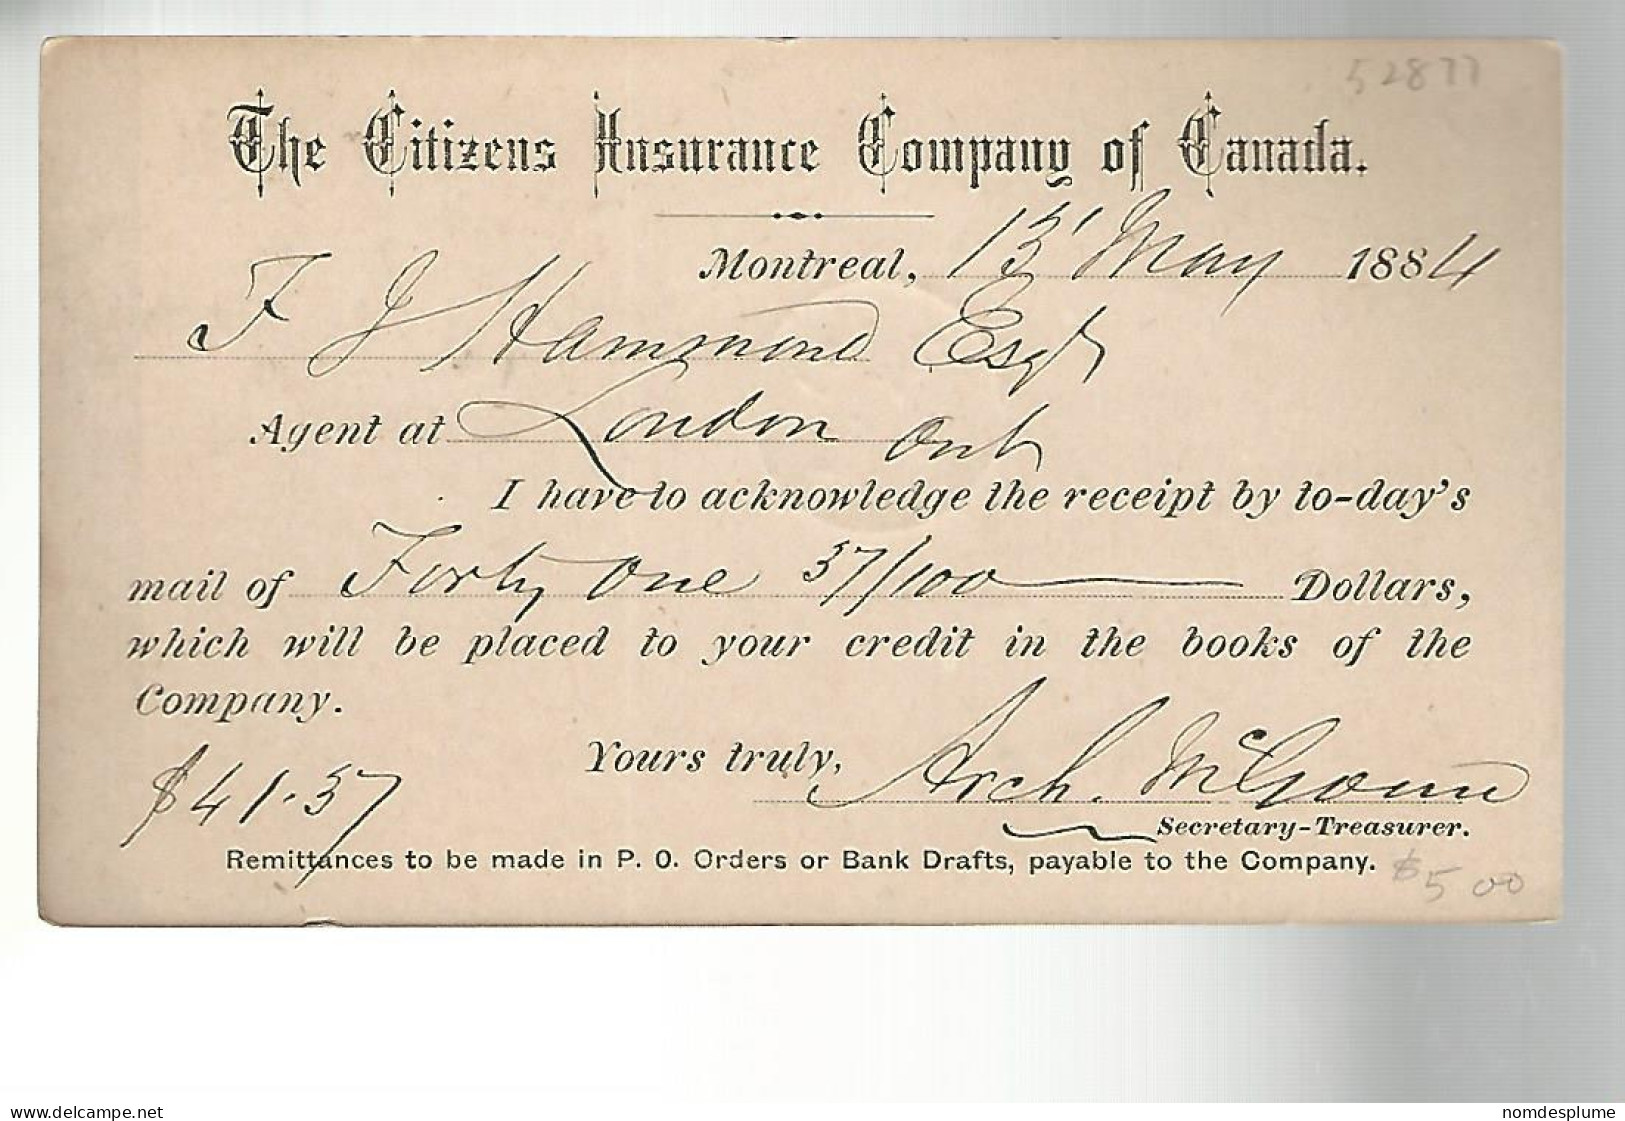 52877
The Citizens Insurance Company of Canada.
Montreal, 13 May 1884
F J Hammond Esq
Agent at London Ont
I have to acknowledge the receipt by to-day's
mail of Forty One 37/100 Dollars,
which will be placed to your credit in the books of the
Company.
Yours truly,
$41.37
Arch. McGoun
Secretary-Treasurer.
Remittances to be made in P. O. Orders or Bank Drafts, payable to the Company.
$5 00
delcampe.net
nomdesplume